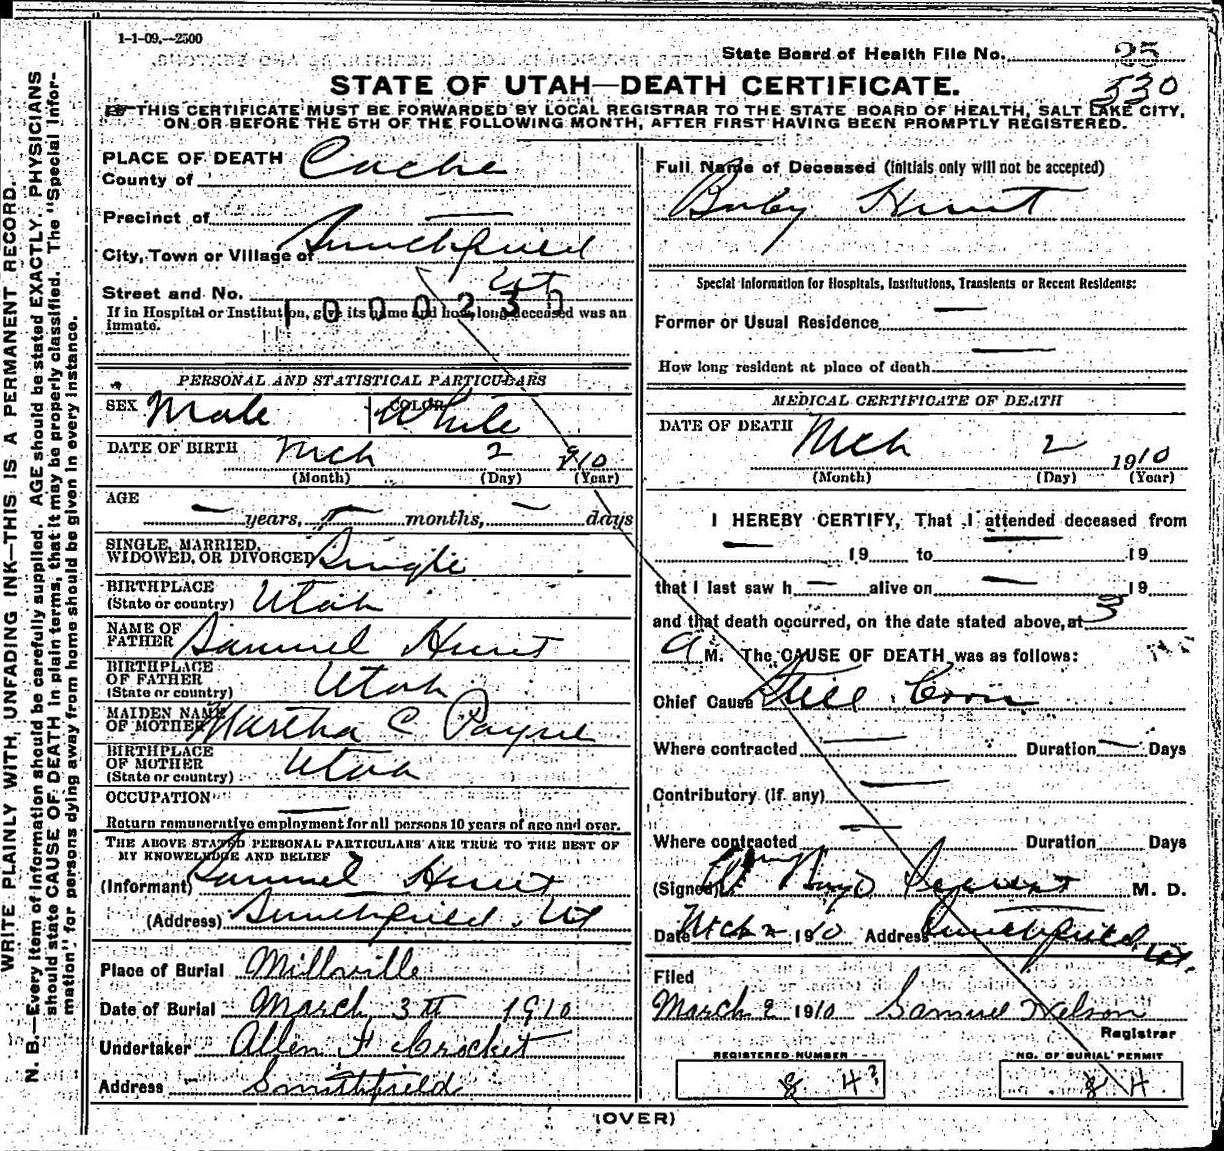 1-1-09.--2500
State Board of Health File No. 25
530
STATE OF UTAH—DEATH CERTIFICATE.
THIS CERTIFICATE MUST BE FORWARDED BY LOCAL REGISTRAR TO THE STATE BOARD OF HEALTH, SALT LAKE CITY,
ON OR BEFORE THE 5TH OF THE FOLLOWING MONTH, AFTER FIRST HAVING BEEN PROMPTLY REGISTERED.
WRITE PLAINLY WITH, UNFADING INK—THIS IS A PERMANENT RECORD.
N. B.—Every item of information should be carefully supplied. AGE should be stated EXACTLY. PHYSICIANS
should state CAUSE OF DEATH in plain terms, that it may be properly classified. The "Special Infor-
mation" for persons dying away from home should be given in every instance.
PLACE OF DEATH
County of Cache
Precinct of
City, Town or Village of Smithfield
Ut
Street and No.
1000230
If in Hospital or Institution, give its name and how long deceased was an
inmate.
PERSONAL AND STATISTICAL PARTICULARS
SEX Male COLOR White
DATE OF BIRTH Mch 2 1910
(Month) (Day) (Year)
AGE
— years, — months, — days
SINGLE, MARRIED,
WIDOWED, OR DIVORCED Single
BIRTHPLACE
(State or country) Utah
NAME OF
FATHER Samuel Hunt
BIRTHPLACE
OF FATHER
(State or country) Utah
MAIDEN NAME
OF MOTHER Martha C Payne
BIRTHPLACE
OF MOTHER
(State or country) Utah
OCCUPATION —
Return remunerative employment for all persons 10 years of age and over.
THE ABOVE STATED PERSONAL PARTICULARS ARE TRUE TO THE BEST OF
MY KNOWLEDGE AND BELIEF
(Informant) Samuel Hunt
(Address) Smithfield. Ut
Place of Burial Millville
Date of Burial March 3th 1910
Undertaker Allen F Crocket
Address Smithfield
Full Name of Deceased (initials only will not be accepted)
Baby Hunt
Special Information for Hospitals, Institutions, Transients or Recent Residents:
Former or Usual Residence —
How long resident at place of death —
MEDICAL CERTIFICATE OF DEATH
DATE OF DEATH Mch 2 1910
(Month) (Day) (Year)
I HEREBY CERTIFY, That I attended deceased from
— 19 to — 19
that I last saw h — alive on — 19
and that death occurred, on the date stated above, at 3
A M. The CAUSE OF DEATH was as follows:
Chief Cause Still Born
Where contracted — Duration — Days
Contributory (If any) —
Where contracted — Duration Days
(Signed) M. D.
Date Mch 2 1910 Address Smithfield, Ut.
Filed
March 2 1910 Samuel Nelson
Registrar
REGISTERED NUMBER
8 4?
NO. OF BURIAL PERMIT
8 4
(OVER)